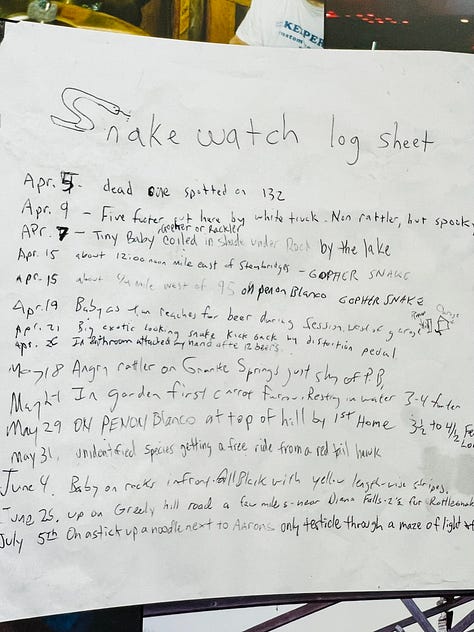 KEEPER
Snake watch log sheet
Apr. 5 - dead one spotted on 132
Apr. 9 - Five footer out here by white truck. Non rattler, but spook
Gopher or Rackler
Apr. 7 - Tiny Baby Coiled in shade under Rock by the lake
Apr. 15 about 12:00 noon mile east of - GOPHER SNAKE
Apr. 15 about 1/4 mile west of 95 on penon Blanco GOPHER SNAKE
Apr. 19 Baby as reaches for beer during Session. west of garage
Apr. 21 Big exotic looking snake kick back by distortion pedal
Apr. 26 In Bathroom attacked by hand after 12 beers.
May 18 Angry rattler on Granite Springs just shy of P.B,
May 21 In garden first carrot furrow. Resting in water 3-4 footer
May 29 ON PENON Blanco at top of hill by 1st Home 3 1/2 to 4 1/2 Fe
May 31. unidentified species getting a free ride from a red tail hawk
June 4. Baby on rocks infront. All Black with yellow length-wise stripes.
June 25. up on Greely hill road a few miles-near Diana Falls-2's fur Rattlesnak
July 5th On a stick up a noodle next to Aarons only testicle through a maze of light